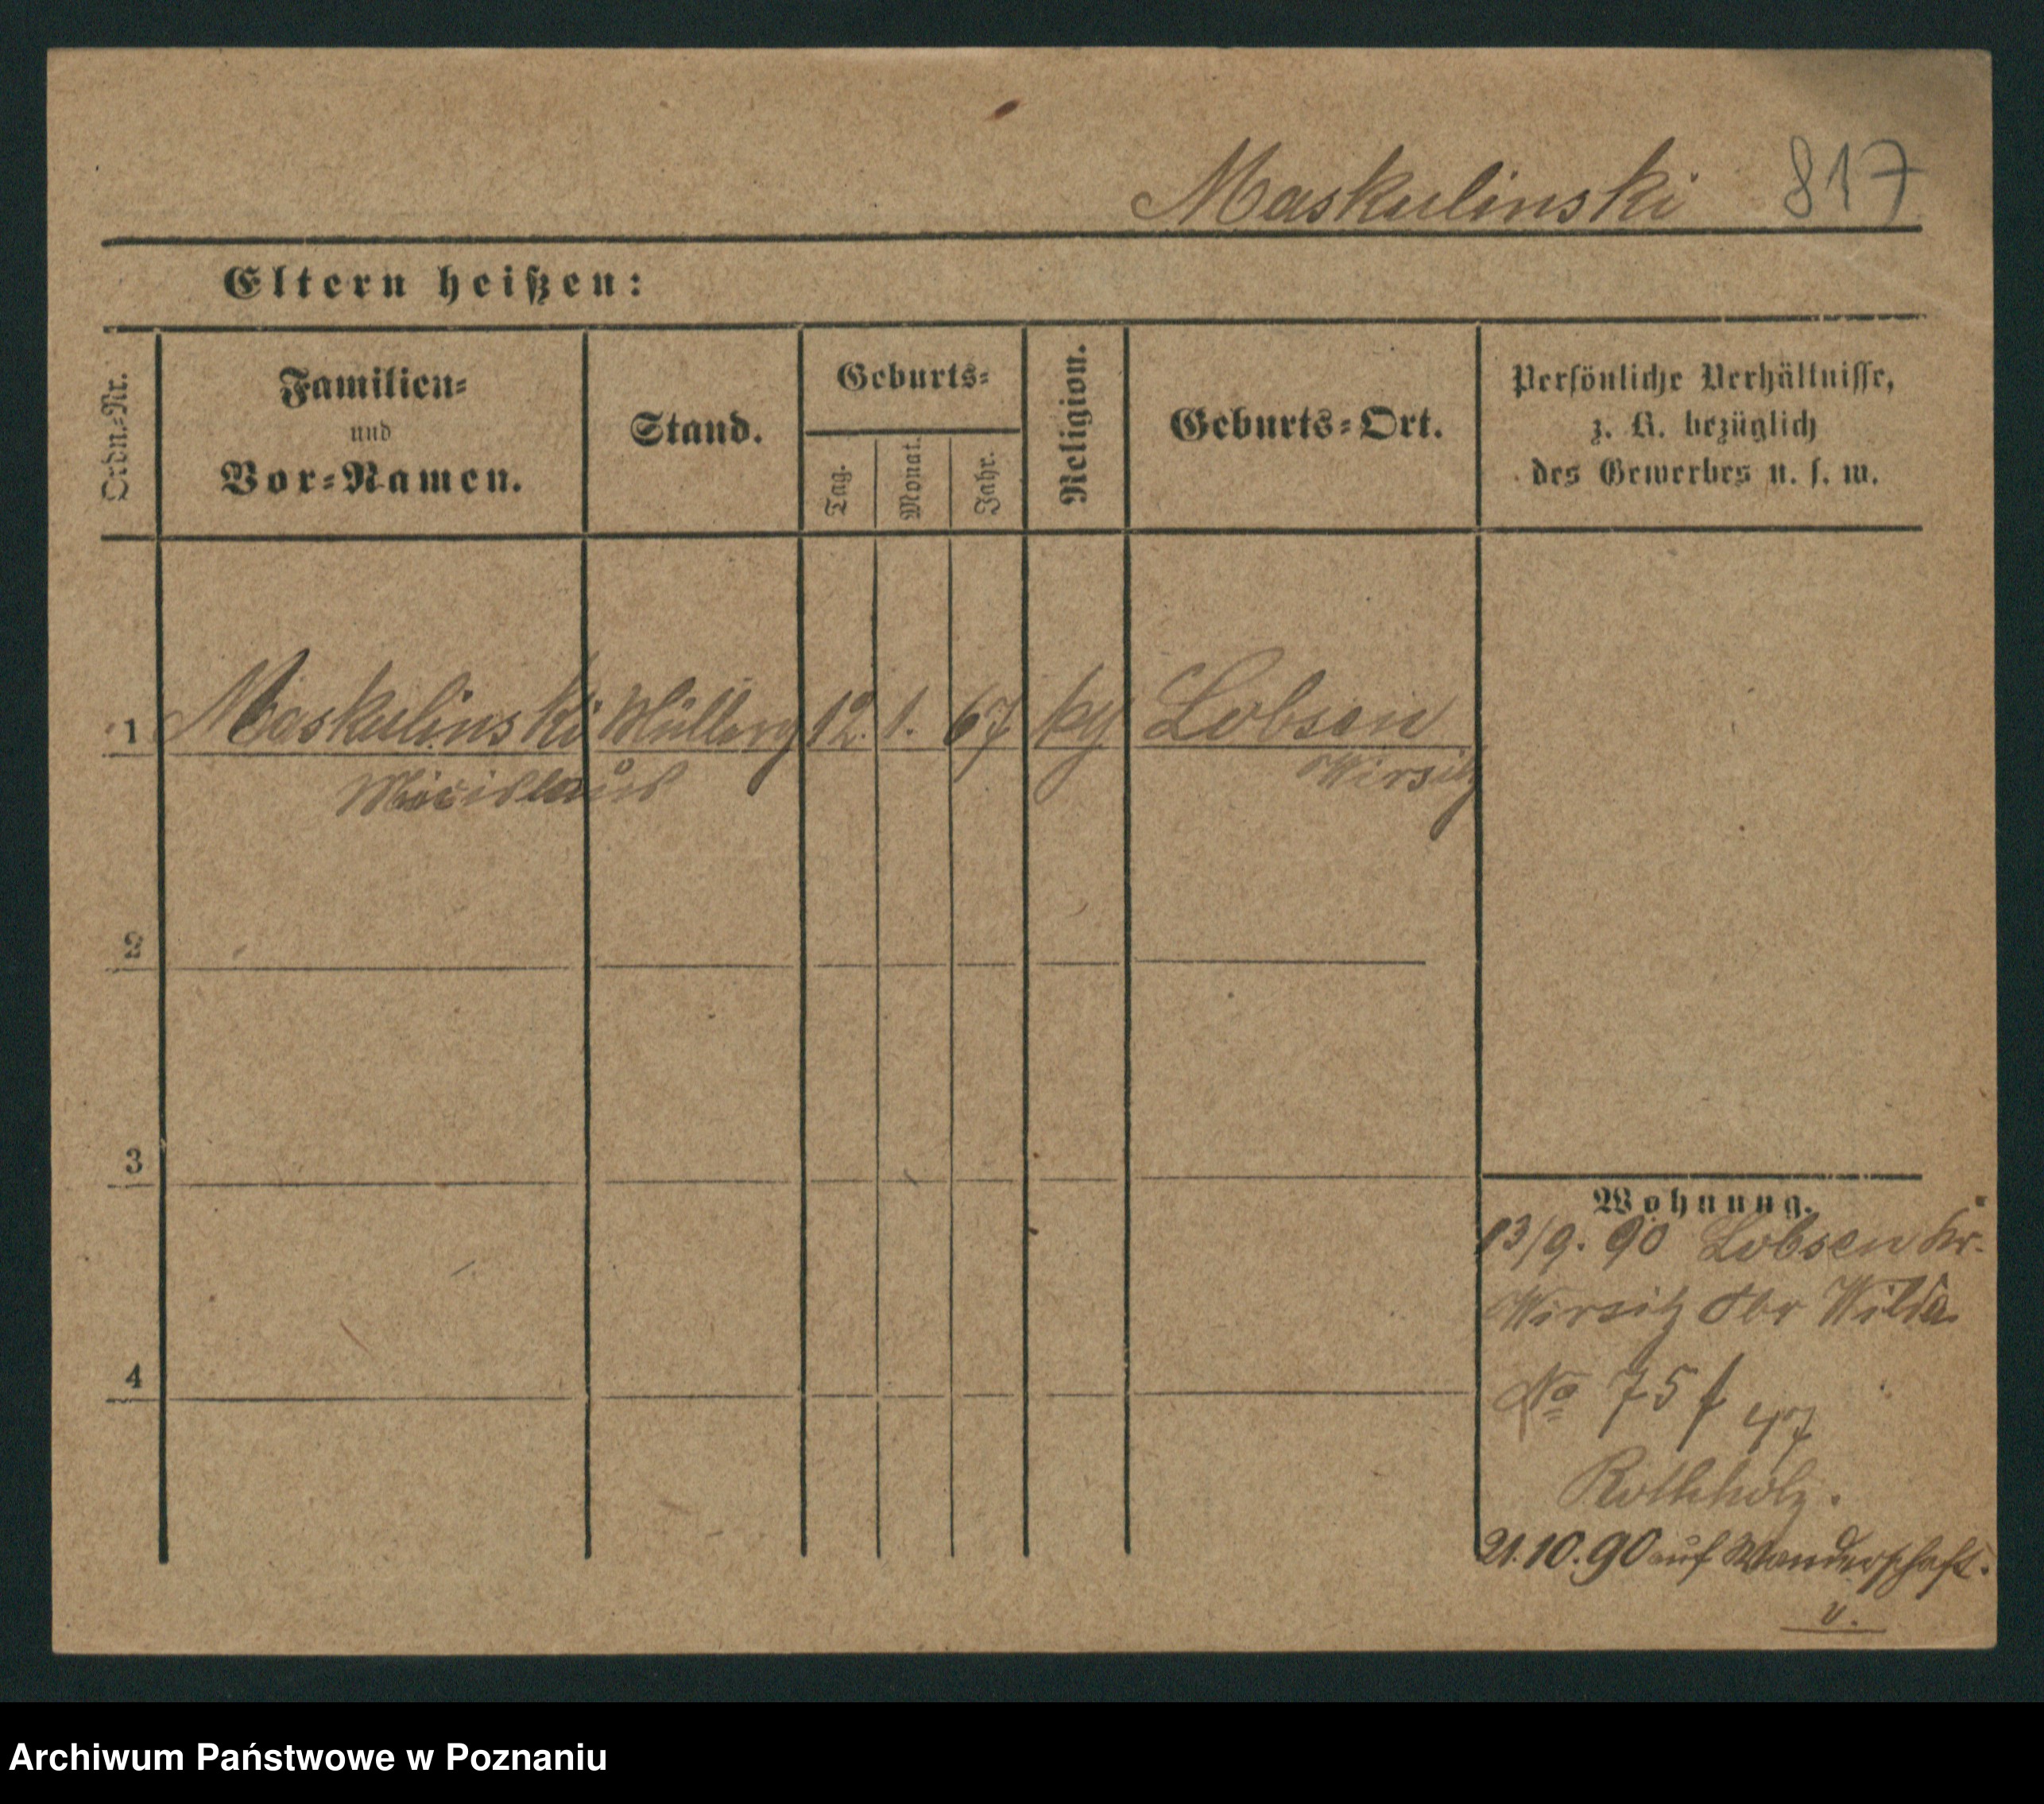 Maskulinski 817
Eltern heißen:
Ordn.-Nr.
Familien-
und
Vor-Namen.
Stand.
Geburts-
Tag.
Monat.
Jahr.
Religion.
Geburts-Ort.
Persönliche Verhältnisse,
z. B. bezüglich
des Gewerbes u. s. w.
1 Maskulinski Müllerg 12. 1. 67 Lobsen
Wirsitz
2
3
4
Wohnung.
13/9. 90 Lobsen Kr.
Wirsitz Obr Wilda
No 75 f
Rothholz.
21.10.90 auf Wanderschaft.